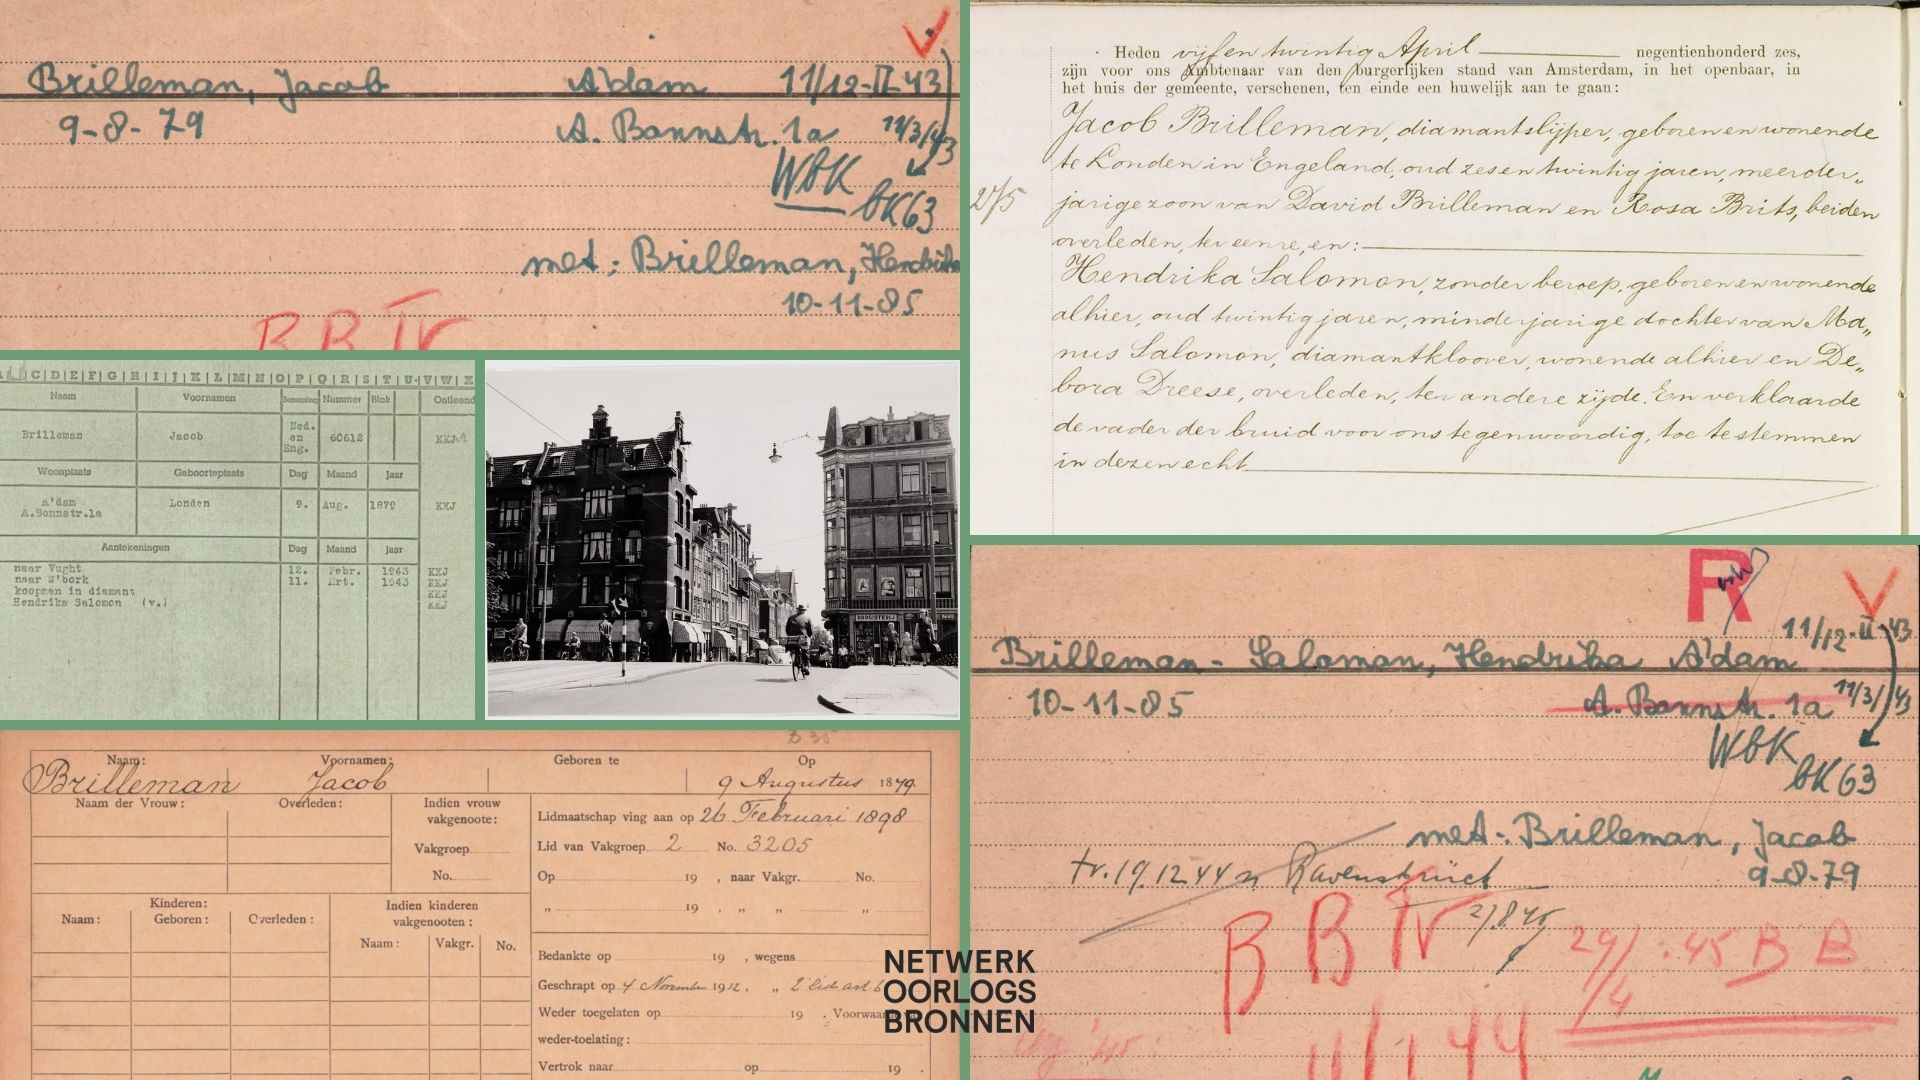 Brilleman, Jacob A'dam 11/12-II-43
9-8-79 A. Bonnstr. 1a 11/3/43
WBK
BK63
met: Brilleman, Hendrika
10-11-85
B B IV
Heden vijf en twintig April negentienhonderd zes,
zijn voor ons Ambtenaar van den burgerlijken stand van Amsterdam, in het openbaar, in
het huis der gemeente, verschenen, ten einde een huwelijk aan te gaan:
Jacob Brilleman, diamantslijper, geboren en wonende
te Londen in Engeland, oud zes en twintig jaren, meerder„
jarige zoon van David Brilleman en Rosa Brits, beiden
overleden, ter eenre, en:
Hendrika Salomon, zonder beroep, geboren en wonende
alhier, oud twintig jaren, minderjarige dochter van Ma„
nus Salomon, diamantkloover, wonende alhier en De„
bora Dreese, overleden, ter andere zijde. En verklaarde
de vader der bruid voor ons tegenwoordig, toe te stemmen
in dezen echt.
C|D|E|F|G|H|I|J|K|L|M|N|O|P|Q|R|S|T|U|V|W|X
Naam Voornamen Benaming Nummer Blok Ontleend
Brilleman Jacob Ned. en Eng. 60612 KKJ
Woonplaats Geboorteplaats Dag Maand Jaar
A'dam Londen 9. Aug. 1879 KKJ
A.Bonnstr.1a
Aantekeningen Dag Maand Jaar
naar Vught 12. Febr. 1943 KKJ
naar W'bork 11. Mrt. 1943 KKJ
koopman in diamant KKJ
Hendrika Salomon (v.) KKJ
DROGISTERIJ
Naam: Voornamen: Geboren te Op
Brilleman Jacob 9 Augustus 1879.
Naam der Vrouw: Overleden: Indien vrouw vakgenoote: Lidmaatschap ving aan op 26 Februari 1898
Vakgroep Lid van Vakgroep 2 No. 3205
No. Op 19 , naar Vakgr. No.
„ 19 , „ „ „
Kinderen: Indien kinderen vakgenooten:
Naam: Geboren: Overleden: Naam: Vakgr. No.
Bedankte op 19 , wegens
Geschrapt op 4 November 1912, „ 2e lid art. 6
Weder toegelaten op 19 . Voorwaar
weder-toelating:
Vertrok naar op 19 .
R
Brilleman-Salomon, Hendrika A'dam 11/12-II-43
10-11-85 A. Bonnstr. 1a 11/3/43
WBK
BK63
met: Brilleman, Jacob
9-8-79
tr. 19.12 44 n Ravensbrück
B B IV 29/4.45 B B
NETWERK
OORLOGS
BRONNEN